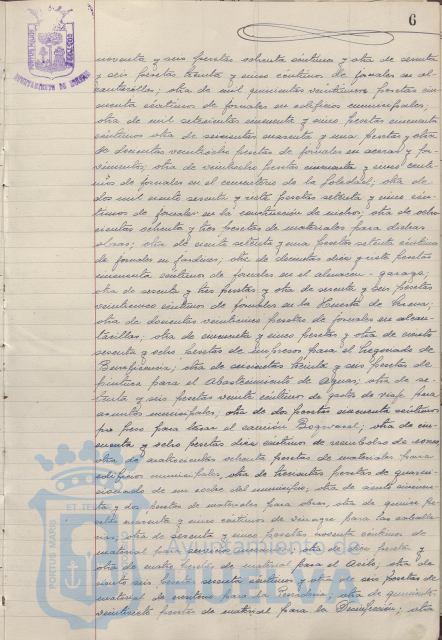 6
noventa y seis pesetas ochenta céntimos y otra de setenta
y seis pesetas treinta y cinco céntimos de jornales en al-
cantarillas; otra de mil quinientas veinticinco pesetas cin-
cuenta céntimos de jornales en edificios municipales;
otra de mil setecientas cincuenta y cinco pesetas cincuenta
céntimos otra de seiscientas noventa y una pesetas y otra
de doscientas veintiocho pesetas de jornales en aceras y pa-
vimentos; otra de veintiocho pesetas cincuenta y cinco cénti-
mos de jornales en el cementerio de la Soledad; otra de
dos mil ciento setenta y siete pesetas setenta y cinco cén-
timos de jornales en la construcción de nichos; otra de ocho-
cientas ochenta y tres pesetas de materiales para dichas
obras; otra de ciento setenta y una pesetas setenta céntimos
de jornales en jardines; otra de doscientas diez y siete pesetas
cincuenta céntimos de jornales en el almacén-garage;
otra de setenta y tres pesetas y otra de setenta y seis pesetas
veinticinco céntimos de jornales en la Huerta de
otra de doscientas veinticinco pesetas de jornales en alcan-
tarillas; otra de cincuenta y cinco pesetas y otra de ciento
sesenta y ocho pesetas de impresos para el Negociado de
Beneficencia; otra de seiscientas treinta y seis pesetas de
pintura para el Abastecimiento de Aguas; otra de se-
tenta y seis pesetas veinte céntimos de gastos de viaje para
asuntos municipales; otra de dos pesetas cincuenta céntimos
por peso para tasar el camión Bogward; otra de cin-
cuenta y ocho pesetas diez céntimos de reembolsos de
otra de cuatrocientas ochenta pesetas de materiales para
edificios municipales, otra de trescientas pesetas de guarni-
cionado de un coche del municipio, otra de ciento cincuen-
ta y dos pesetas de materiales para obras, otra de quince pe-
setas noventa y cinco céntimos de vinagre para las caballe-
rías, otra de setenta y cinco pesetas noventa céntimos de
material para servicio municipal, otra de diez pesetas y
otra de cuatro pesetas de material para el Asilo, otra de
ciento seis pesetas sesenta céntimos y otra de seis pesetas de
material de escritorio para la Secretaría; otra de quinientas
veintisiete pesetas de material para la Desinfección; otra
Ayuntamiento de
PORTUS MARIS ET TE